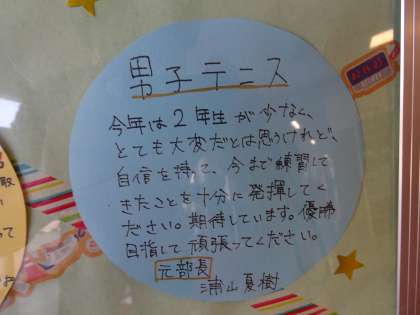 男子テニス
今年は2年生が少なく、
とても大変だとは思うけれど、
自信を持って、今まで練習して
きたことを十分に発揮してく
ださい。期待しています。優勝
目指して頑張ってください。
元部長
浦山夏樹